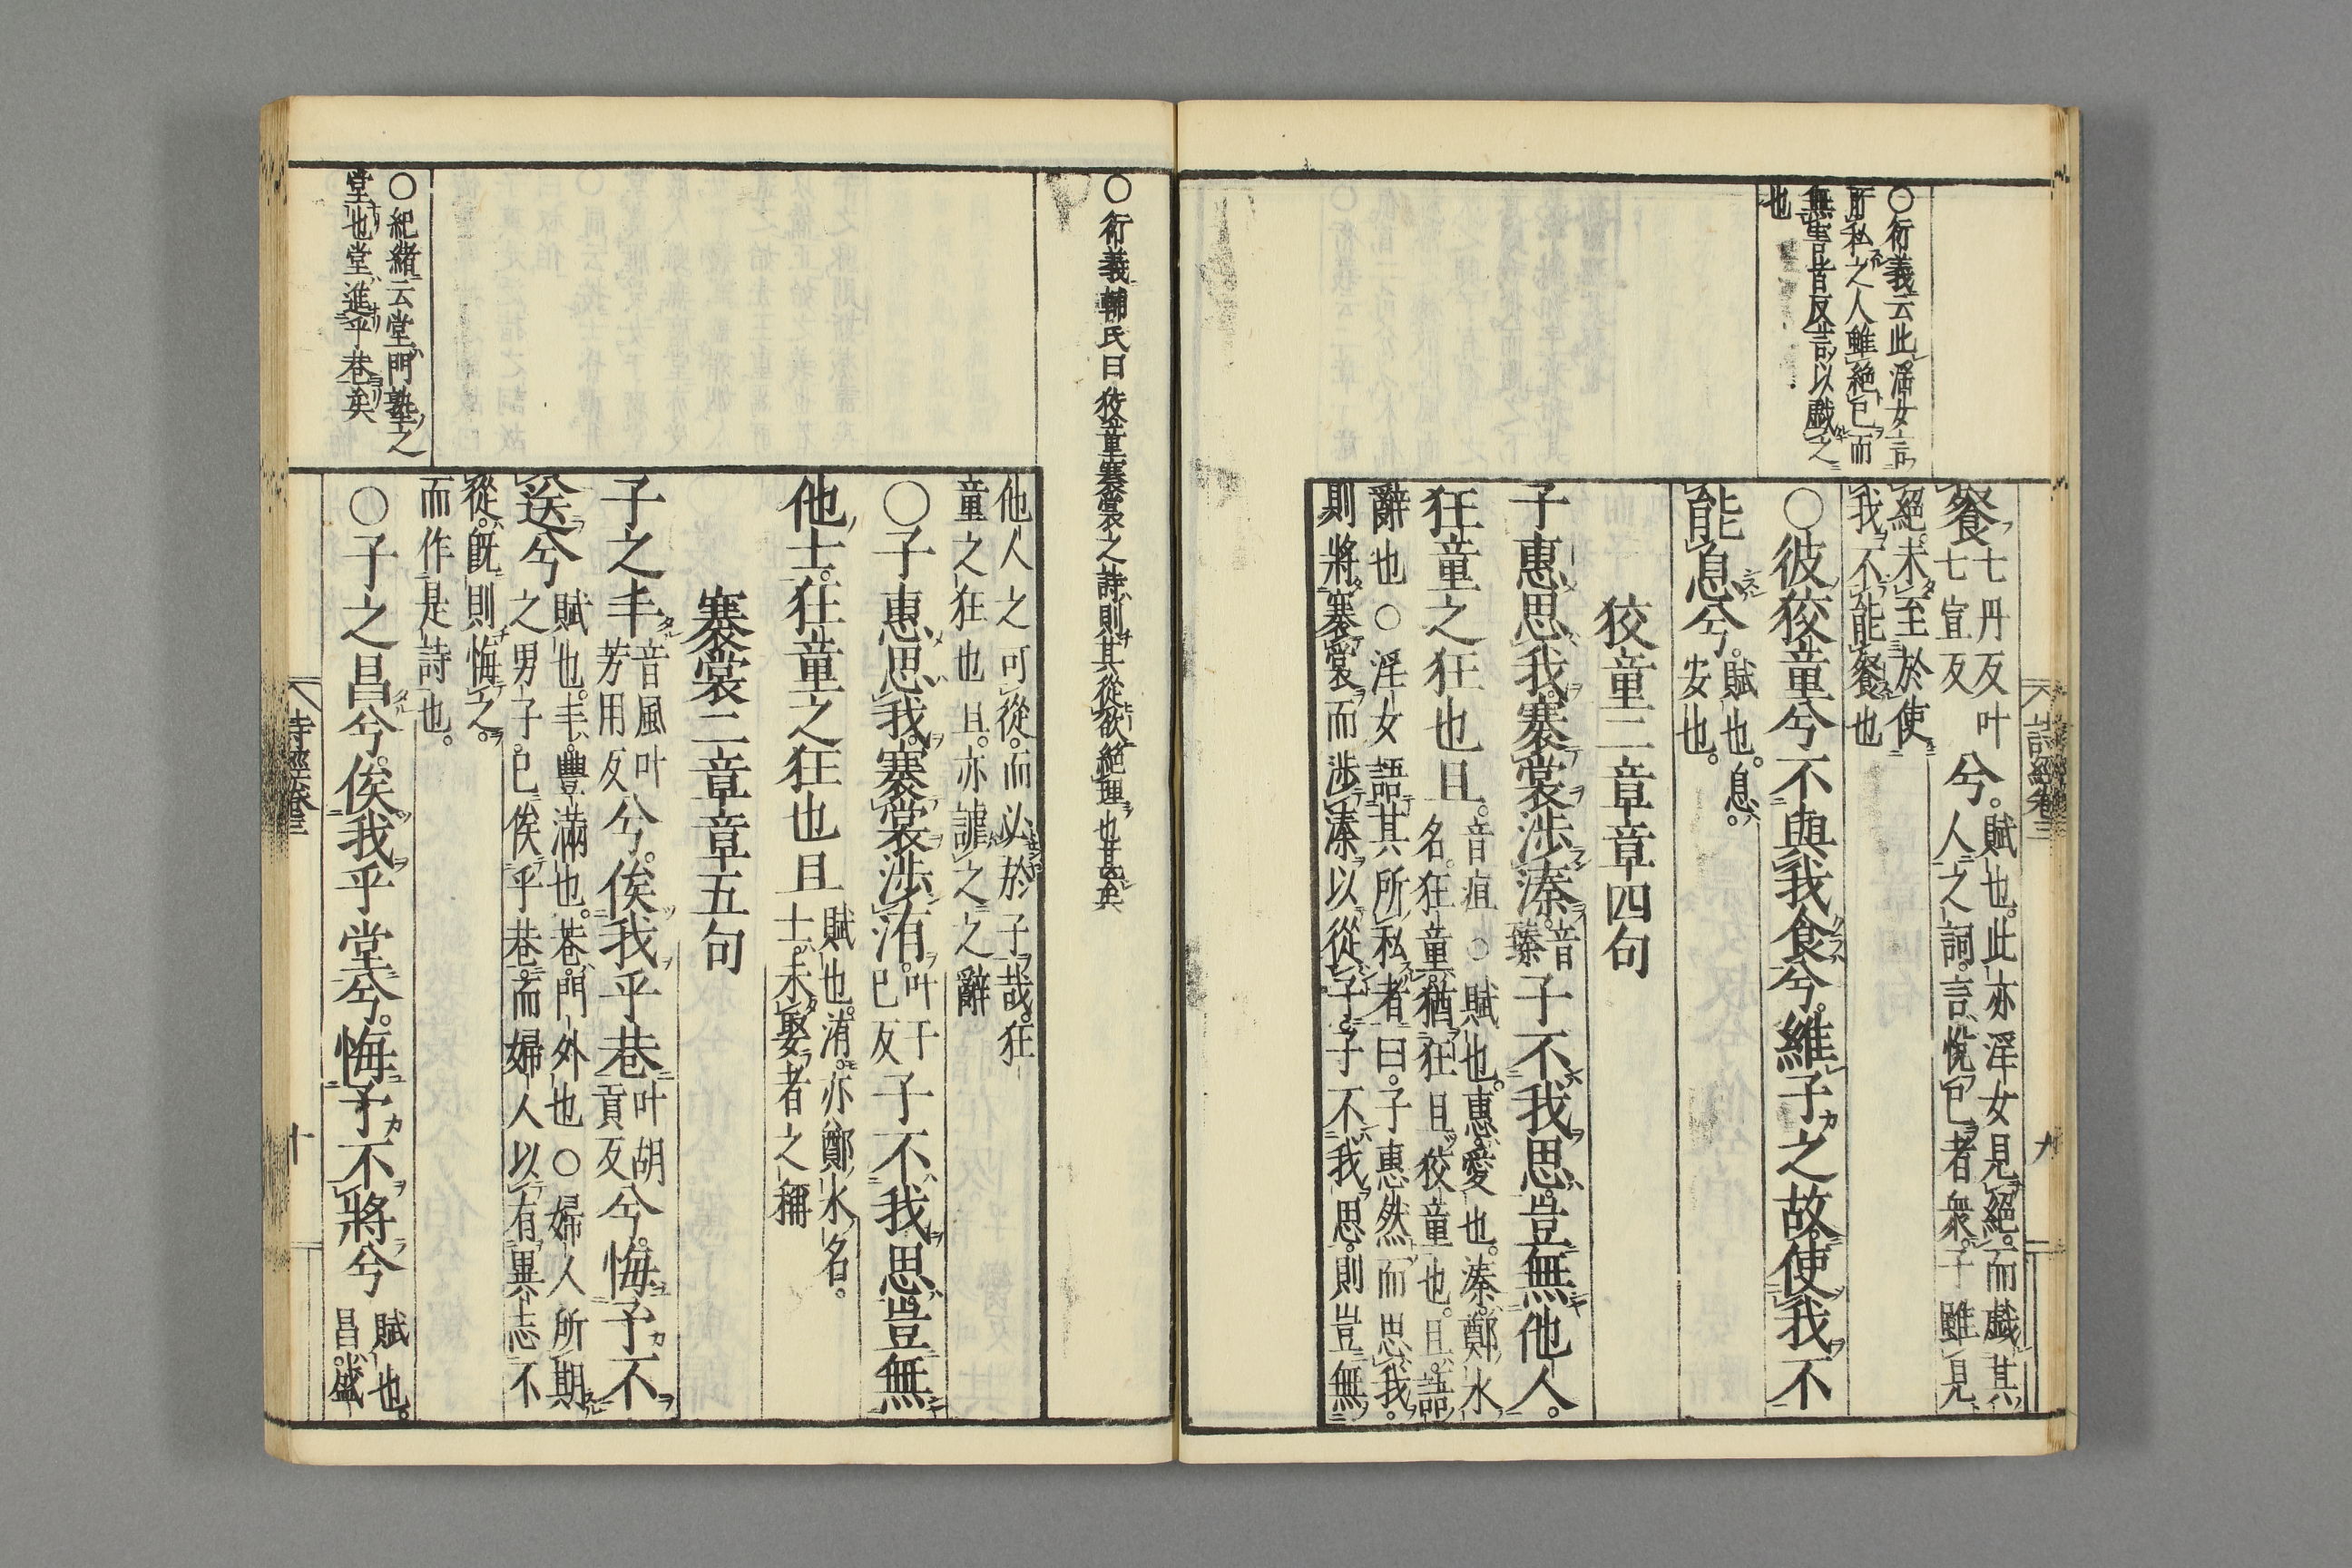 詩經卷三
九
○衍義云此淫女言
所私之人雖絶已而
無害者反言以戲之
也
餐七丹反叶七宣反兮。賦也。此亦淫女見絶。而戲其
人之詞。言悅已者衆。子雖見
絶。未至於使
我不能餐也
○彼狡童兮不與我食兮。維子之故。使我不
能息兮。賦也。息。安也。
狡童二章章四句
子惠思我。褰裳涉溱。音臻子不我思。豈無他人。
狂童之狂也且。音疽○賦也。惠。愛也。溱。鄭水
名。狂童。猶狂且狡童也。且。語
辭也○淫女語其所私者曰。子惠然而思我。
則將褰裳而涉溱以從子。子不我思。則豈無
○衍義輔氏曰狡童褰裳之詩則其從欲絶理也甚矣
他人之可從。而必於子哉。狂
童之狂也且。亦謔之之辭
○子惠思我。褰裳涉洧。叶于己反子不我思。豈無
他士。狂童之狂也且賦也。洧。亦鄭水名。
士。未娶者之稱
褰裳二章章五句
子之丰音風叶芳用反兮。俟我乎巷叶胡貢反兮。悔予不
送兮賦也。丰。豐滿也。巷。門外也○婦人所期
之男子。已俟乎巷。而婦人以有異志不
從。旣則悔之。
而作是詩也。
○紀緒云堂門塾之
堂也堂進乎巷矣
○子之昌兮。俟我乎堂兮。悔予不將兮賦也。昌。盛
詩經卷三
十